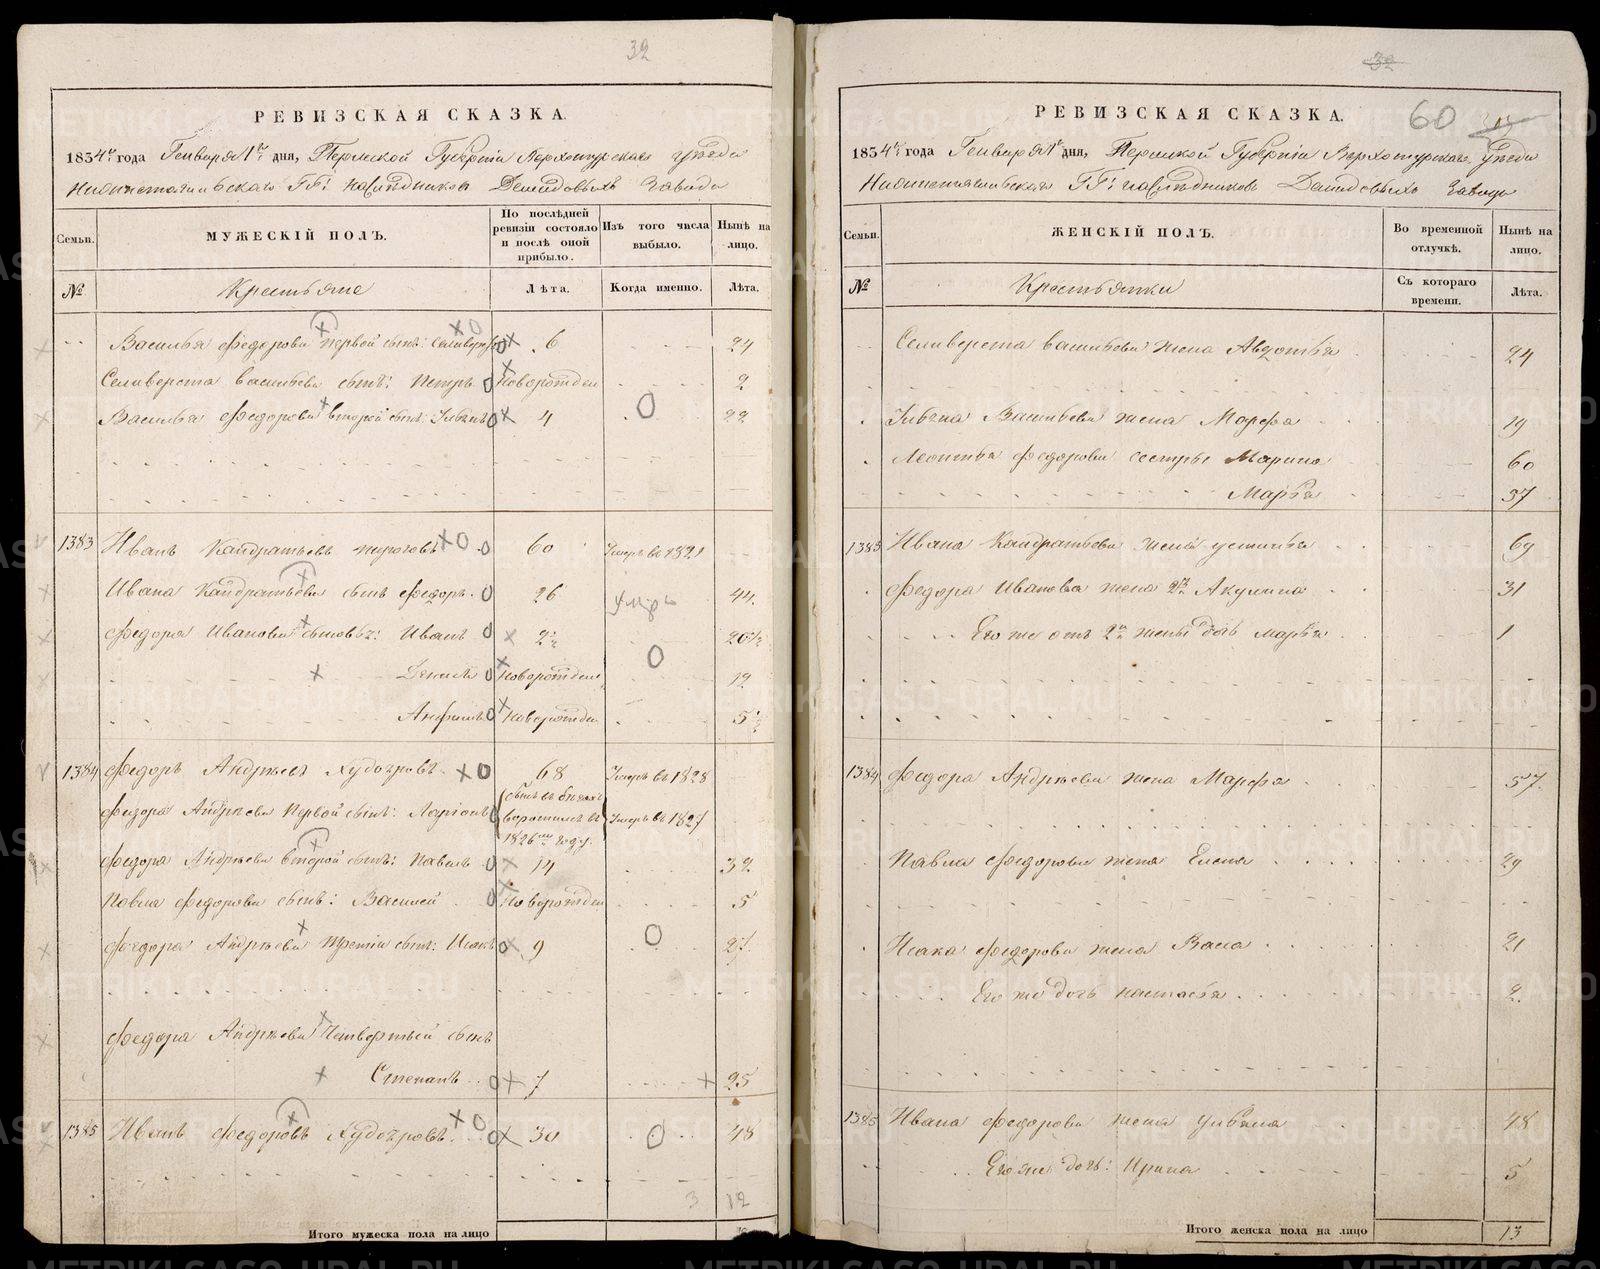 32
РЕВИЗСКАЯ СКАЗКА.
1834го года Генваря 1го дня, Пермской Губерніи Верхотурскаго уѣзда
Нижнетагильскаго ГГ: наслѣдниковъ Демидовыхъ завода
Семьи.
МУЖЕСКІЙ ПОЛЪ.
По послѣдней ревизіи состояло и послѣ оной прибыло.
Изъ того числа выбыло.
Нынѣ на лицо.
№
Крестьяне
Лѣта.
Когда именно.
Лѣта.
Василья Федорова первой сынъ: Селиверстъ 6 24
Селиверста Васильева сынъ: Петръ Новорожден 2
Василья Федорова второй сынъ: 4 22
1383 Иванъ Кандратьевъ 60 Умеръ въ 1821
Ивана Кандратьева сынъ Федоръ 26 умеръ 44
Федора Иванова сыновья: Иванъ 2½ 20½
Денисъ Новорожден 12
Новорожден 5½
1384 Федоръ Андреевъ Худояровъ 68 Умеръ въ 1828
Федора Андреева Первой сынъ: Ларіонъ былъ въ бегахъ воротился въ 1826мъ году Умеръ въ 1827
Федора Андреева второй сынъ: Павелъ 14 32
Павла Федорова сынъ: Василей Новорожден 5
Федора Андреева Третій сынъ: Исакъ 9 27
Федора Андреева Четвертый сынъ
Степанъ 7 25
1385 Иванъ Федоровъ Худояровъ 30 48
3 12
Итого мужеска пола на лицо
32
60
РЕВИЗСКАЯ СКАЗКА.
1834го года Генваря 1го дня, Пермской Губерніи Верхотурскаго уѣзда
Нижнетагильскаго ГГ: наслѣдниковъ Демидовыхъ завода
Семьи.
ЖЕНСКІЙ ПОЛЪ.
Во временной отлучкѣ.
Нынѣ на лицо.
№
Крестьянки
Съ котораго времени.
Лѣта.
Селиверста Васильева жена Авдотья 24
Васильева жена Марфа 19
Леонтья Федорова сестры Марина 60
Марья 37
1383 Ивана Кандратьева жена Устинья 69
Федора Иванова жена 2я Акулина 31
Его же отъ 2й жены дочь Марья 1
1384 Федора Андреева жена Марфа 57
Павла Федорова жена Елена 29
Исака Федорова жена Васа 21
Его же дочь Настасья 2
1385 Ивана Федорова жена Ульяна 48
Его же дочь: Ирина 5
Итого женска пола на лицо 13
METRIKI.GASO-URAL.RU